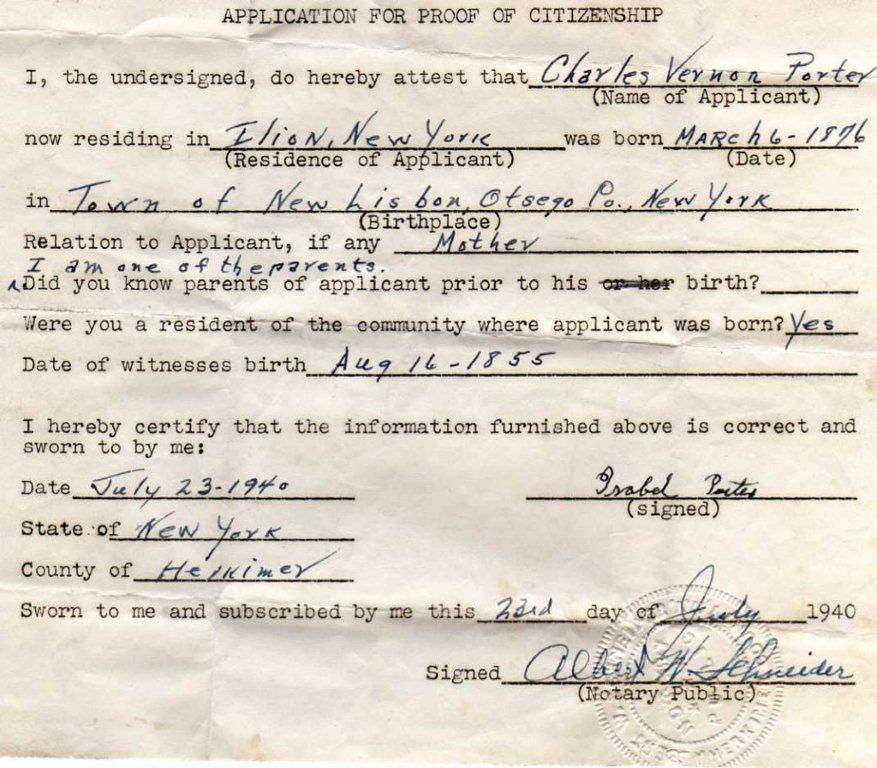 APPLICATION FOR PROOF OF CITIZENSHIP
I, the undersigned, do hereby attest that Charles Vernon Porter
(Name of Applicant)
now residing in Ilion, New York was born March 6-1876
(Residence of Applicant) (Date)
in Town of New Lisbon, Otsego Co., New York
(Birthplace)
Relation to Applicant, if any Mother
I am one of the parents.
Did you know parents of applicant prior to his or her birth?
Were you a resident of the community where applicant was born? Yes
Date of witnesses birth Aug 16-1855
I hereby certify that the information furnished above is correct and
sworn to by me:
Date July 23-1940 Isabel Porter
(signed)
State of New York
County of Herkimer
Sworn to me and subscribed by me this 23rd day of July 1940
Signed Albert W. Schneider
(Notary Public)